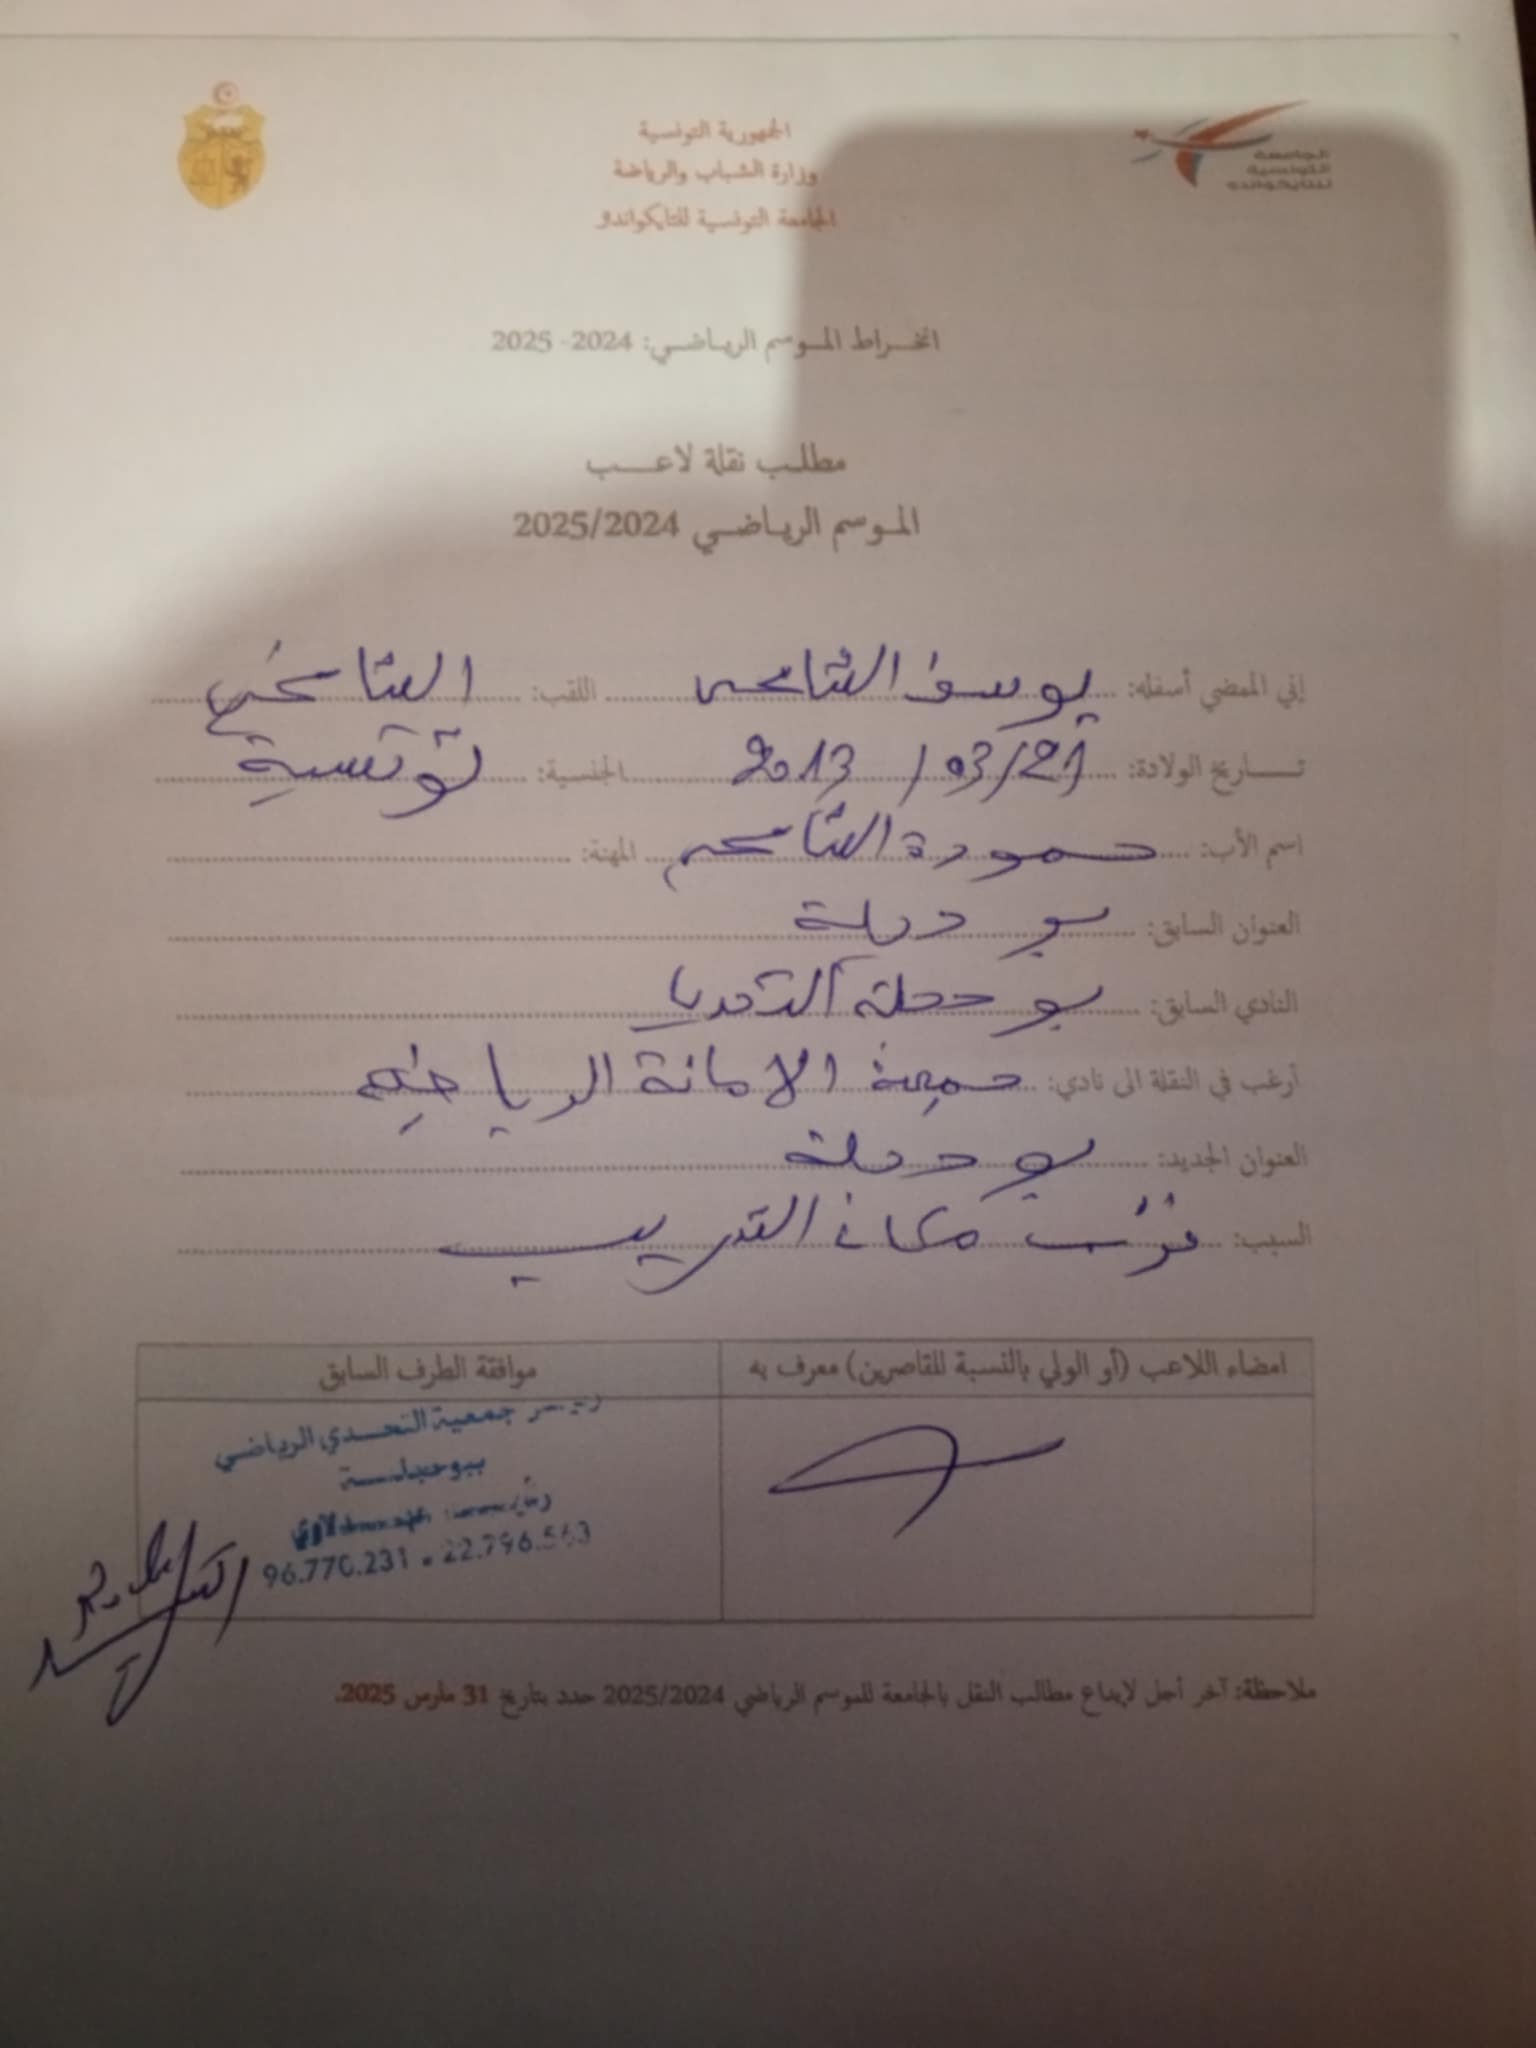 الجمهورية التونسية
وزارة الشباب والرياضة
الجامعة التونسية للتايكواندو
الجامعة
التونسية
للتايكواندو
انخراط الموسم الرياضي: 2024- 2025
مطلب نقلة لاعب
الموسم الرياضي 2025/2024
إني الممضي أسفله: يوسف الشامخي اللقب: الشامخي
تاريخ الولادة: 2013 / 03/21 الجنسية: تونسية
اسم الأب: حمودة الشامخي المهنة:
العنوان السابق: بوحجلة
النادي السابق: بوحجلة
أرغب في النقلة الى نادي: جمعية الامانة الرياضية
العنوان الجديد: بوحجلة
السبب: قرب مكان التدريب
امضاء اللاعب (أو الولي بالنسبة للقاصرين) معرف به
موافقة الطرف السابق
جمعية التحدي الرياضي
ببوحجلة
96.770.231 - 22.796.563
ملاحظة: آخر أجل لإيداع مطالب النقل بالجامعة للموسم الرياضي 2025/2024 حدد بتاريخ 31 مارس 2025.